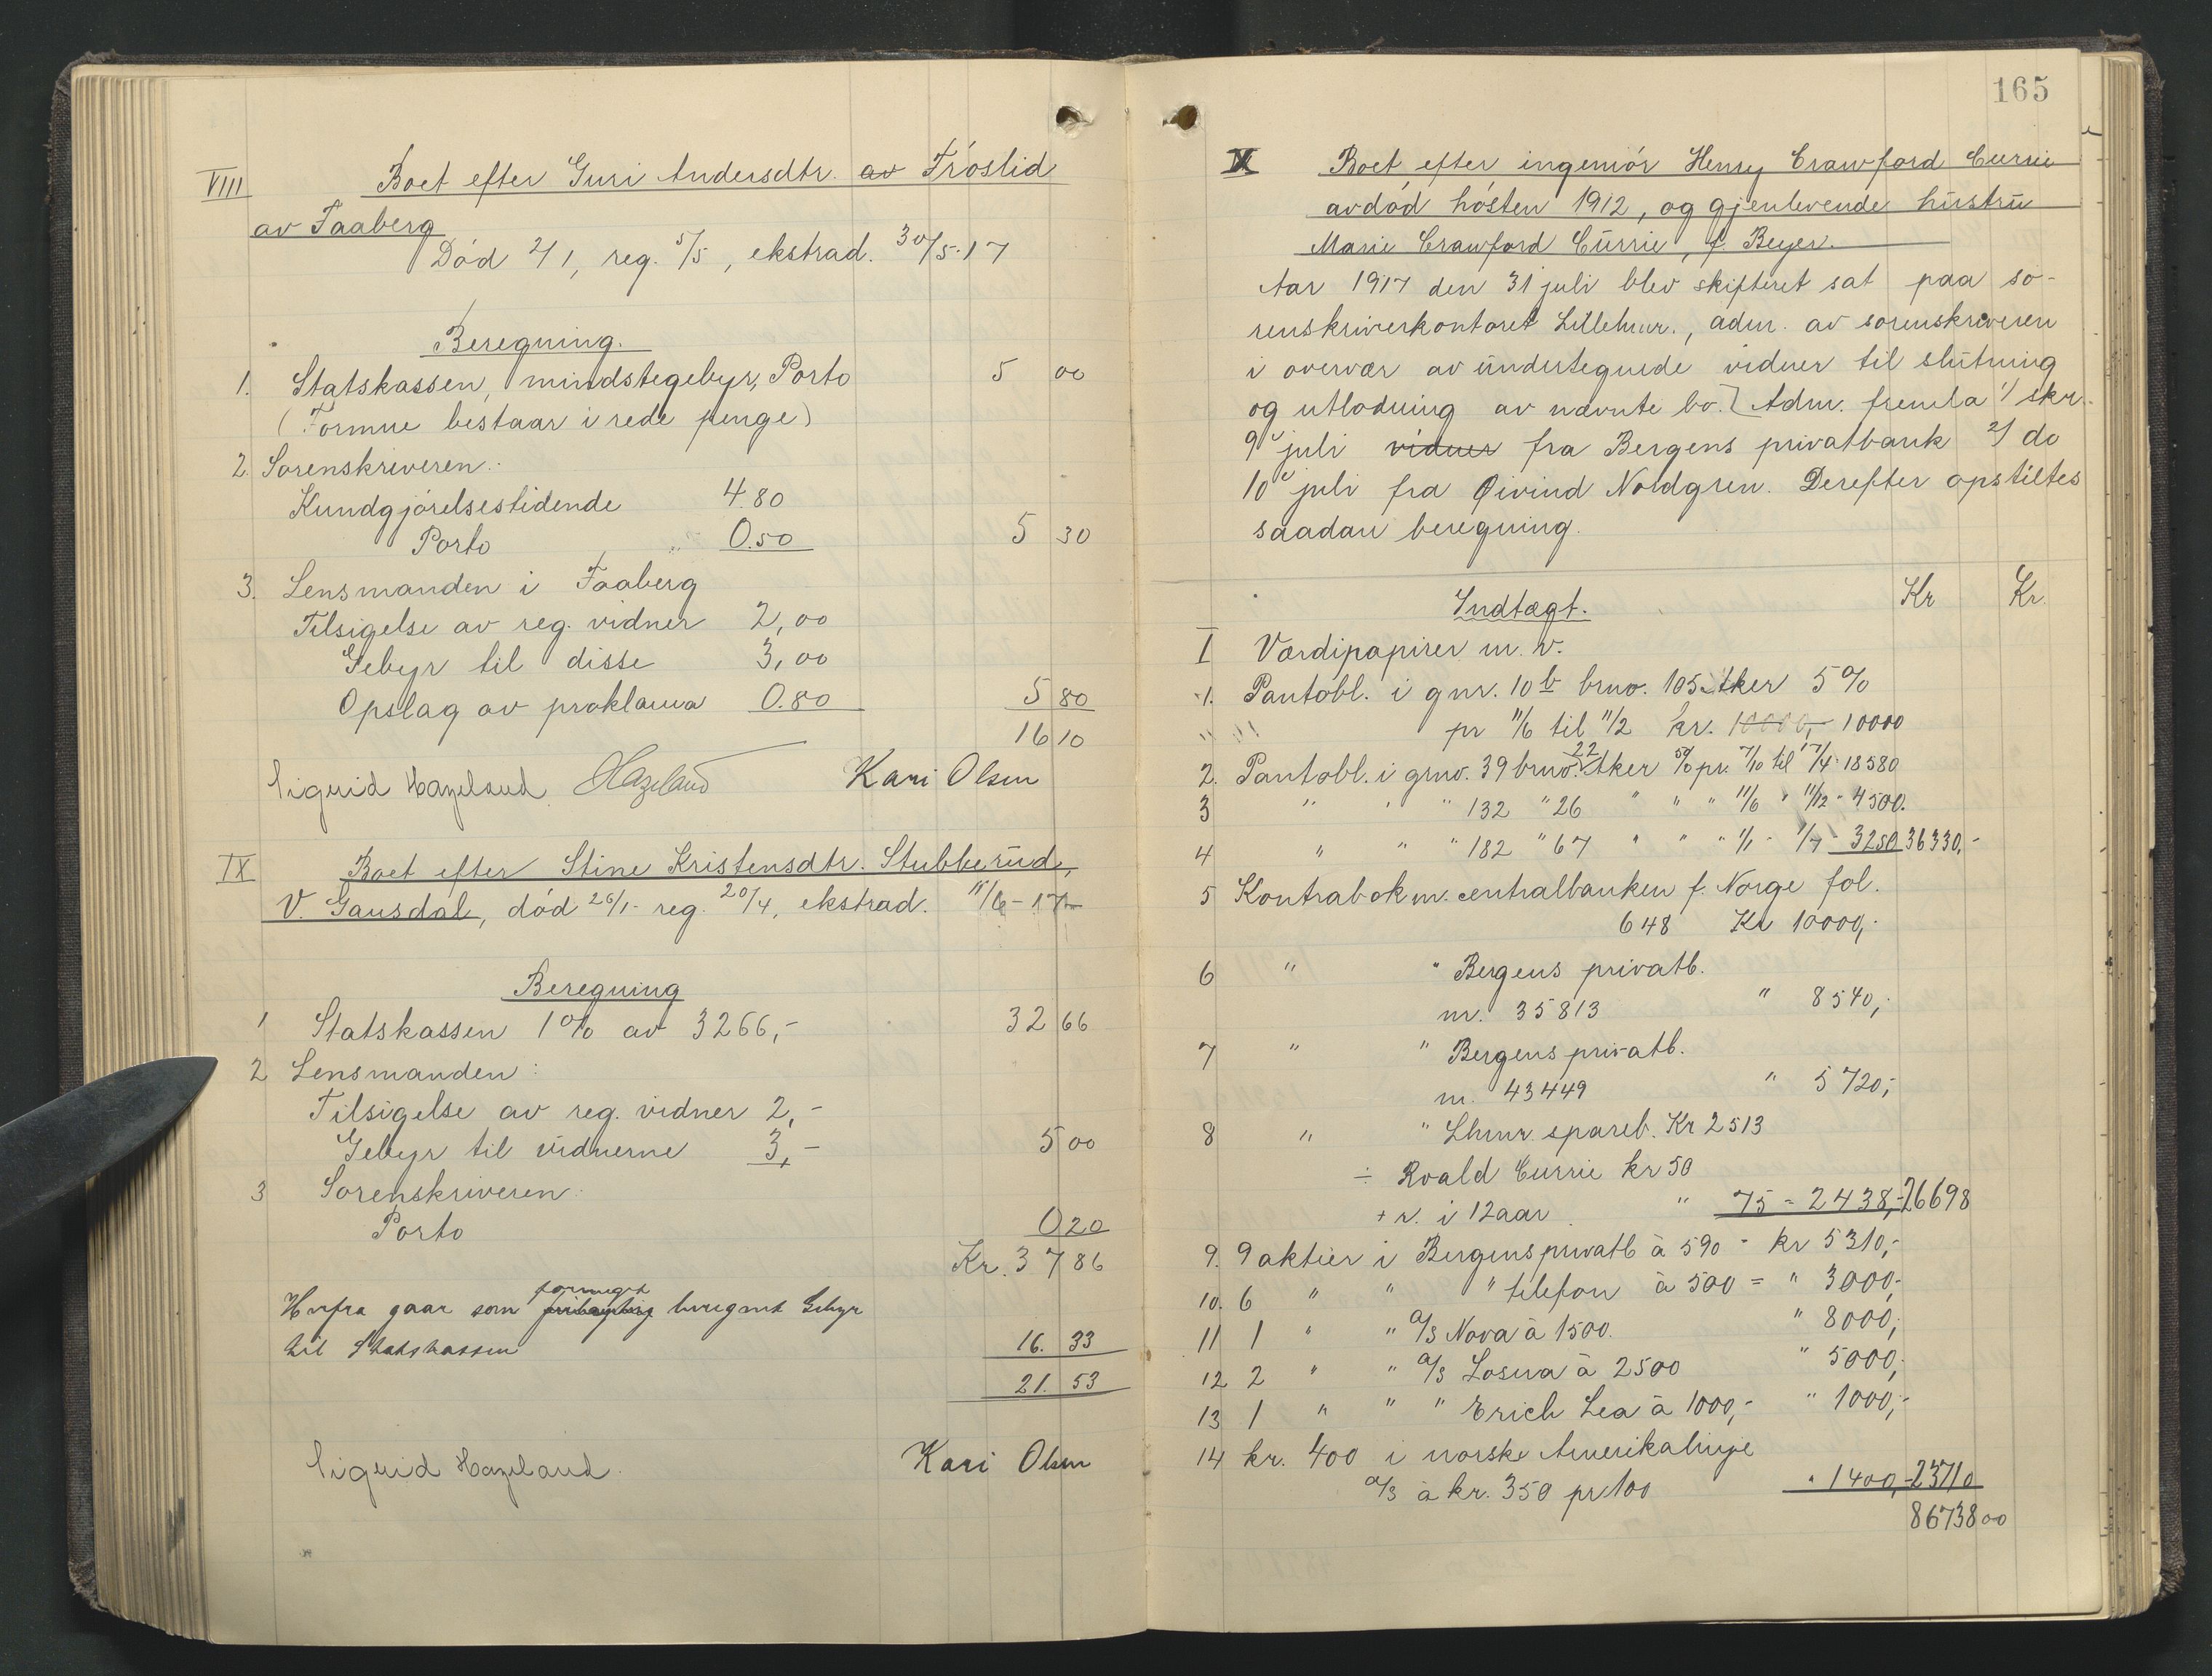 VIII Boet efter Guri Andersdtr. av Fróslid
av Faaberg
Död 2/1, reg. 5/5, ekstrad. 30/5-17
Beregning.
1. Statskassen, mindstegebyr, Porto 5 00
(Formue bestaar i rede penge)
2. Sorenskriveren:
Kundgjörelsestidende 4.80
Porto " 0.50 5 30
3. Lensmanden i Faaberg
Tilsigelse av reg. vidner 2,00
Gebyr til disse 3,00
Opslag av proklama 0.80 5 80
16 10
Sigurd Hazeland Hazeland Kari Olsen
IX Boet efter Stine Kristensdtr. Stubberud,
V. Gausdal, död 26/1- reg. 20/4, ekstrad. 11/6-17
Beregning
1 Statskassen 1% av 3266,- 32 66
2 Lensmanden:
Tilsigelse av reg. vidner 2,-
Gebyr til vidnerne 3,- 5 00
3 Sorenskriveren:
Porto 0 20
Kr. 37 86
Herfra gaar som beregnet Gebyr
til Statskassen 16. 33
21. 53
Sigurd Hazeland. Kari Olsen
165
X Boet efter ingeniör Henry Crawford Currie
avdöd hösten 1912, og gjenlevende hustru
Marie Crawford Currie, f. Beyer.
Aar 1917 den 31 juli blev skifteret sat paa so-
renskriverkontoret Lillehmr., adm. av sorenskriveren
i overvær av undertegnede vidner til slutning
og utlodning av nævnte bo. Adm. fremla 1/ skr.
9 juli vidner fra Bergens privatbank 2/ do
10 juli fra Øivind Nordgren. Derefter opstiltes
saadan beregning.
Indtægt. Kr Kr.
I Værdipapirer m. v.
1. Pantobl. i gnr. 10 b brno. 105 Aker 5%
pr 11/6 til 11/2 kr. 10000,- 10000
2. Pantobl. i grno. 39 brno. 22 Aker 5% pr. 7/10 til 17/4 - 18580
3 " " " 132 " 26 " " " 11/6 " 11/12 - 4500.
4 " " " 182 " 67 " " " 1/1 - 1/7 - 3250 36330,-
5 Kontrabok m. centralbanken f. Norge fol.
648 Kr 10000,-
6 " " Bergens privatb.
nr. 35813 " 8540,-
7 " " Bergens privatb.
nr. 43449 " 5720,-
8 " " Lhmr. spareb. Kr 2513
÷ Roald Currie kr 50
+ r. i 12 aar " 75 = 2438,- 26698
9. 9 aktier i Bergens privatb à 590 - kr 5310,-
10. 6 " " " telefon à 500 = " 3000,-
11 1 " " A/S Nova à 1500. " 8000,-
12 2 " " A/S Losna à 2500 " 5000,-
13 1 " " " Erich Lea à 1000,- " 1000,-
14 kr. 400 i norske Amerikalinje
A/S à kr. 350 pr 100 " 1400,- 23710
86738 00